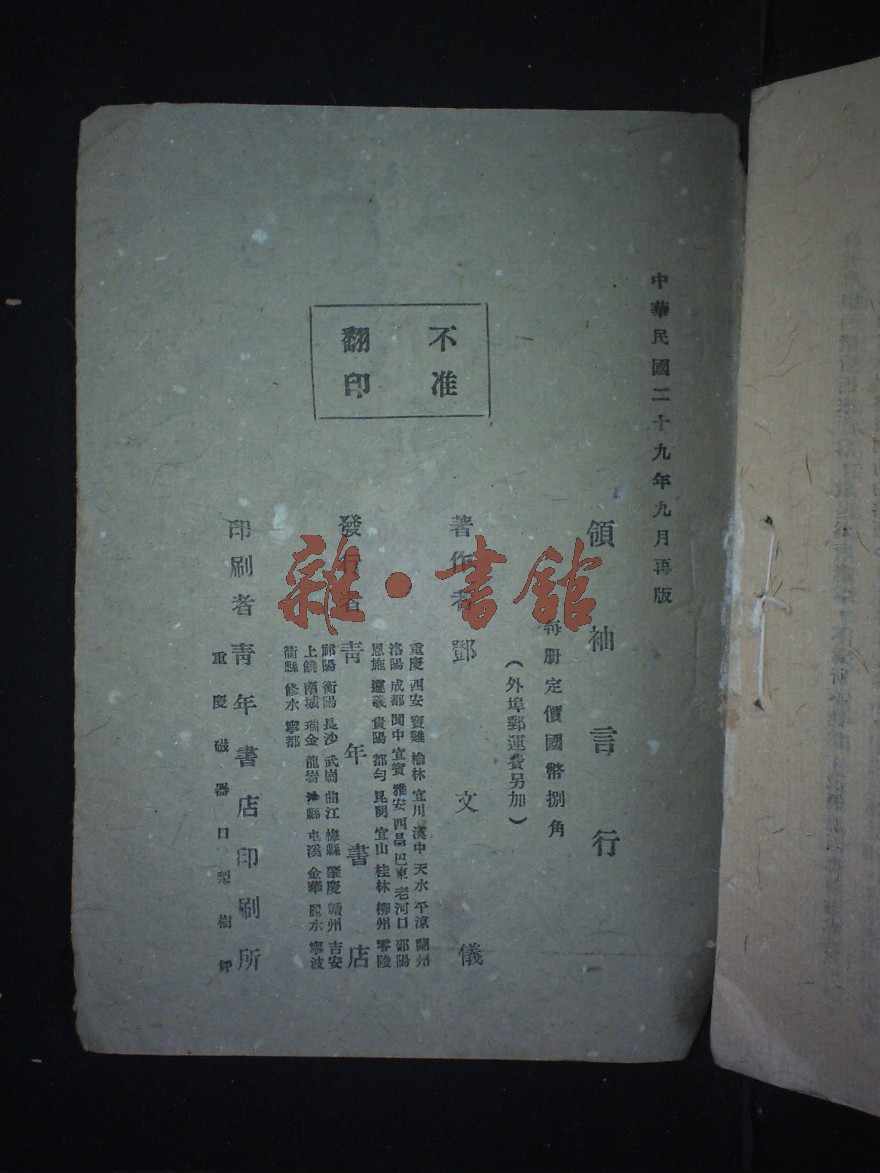 中華民國二十九年九月再版
領袖言行
每册定價國幣捌角
（外埠郵運費另加）
不准
翻印
著作者 鄧文儀
發行者 青年書店
重慶 西安 寶雞 榆林 宜川 漢中 天水 平涼 蘭州
洛陽 成都 閬中 宜賓 雅安 西昌 巴東 老河口 鄖陽
恩施 遵義 貴陽 都勻 昆明 宜山 桂林 柳州 零陵
邵陽 衡陽 長沙 武岡 曲江 梅縣 肇慶 贛州 吉安
上饒 南城 瑞金 龍岩 沙縣 屯溪 金華 麗水 寧波
衢縣 修水 寧都
印刷者 青年書店印刷所
重慶磁器口梨樹
雜·書館